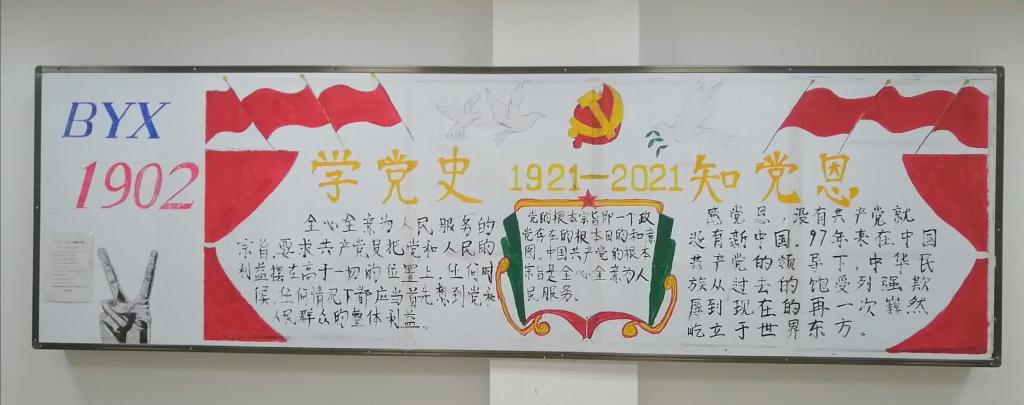 BYX
1902
学党史 1921—2021 知党恩
全心全意为人民服务的
宗旨,要求共产党员把党和人民的
利益摆在高于一切的位置上,任何时
候,任何情况下都应当首先想到党和
人民群众的整体利益。
党的根本宗旨即一个政
党存在的根本目的和意
图。中国共产党的根本
宗旨是全心全意为人
民服务。
感党恩,没有共产党就
没有新中国.97年来在中国
共产党的领导下,中华民
族从过去的饱受列强欺
辱到现在的再一次巍然
屹立于世界东方。